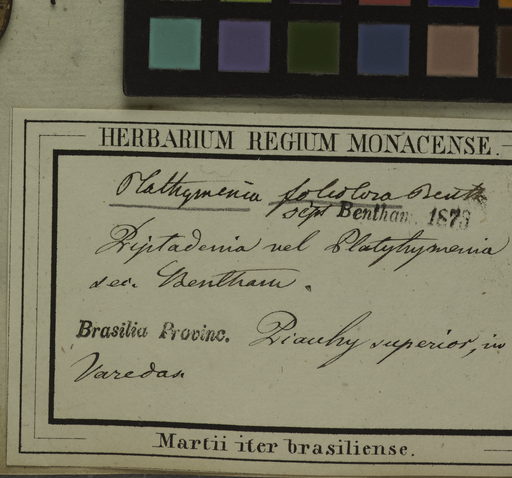 HERBARIUM REGIUM MONACENSE.
Plathymenia foliolosa Benth
sept Bentham. 1873
Piptadenia vel Platyhymenia
sec. Bentham.
Brasilia Provinc. Piauhy superior, in
Varedas.
Martii iter brasiliense.